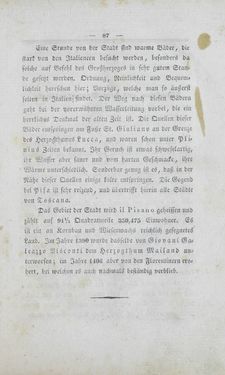 — 87 —
Eine Stunde von der Stadt sind warme Bäder, die
stark von den Italienern besucht werden, besonders da
solche auf Befehl des Großherzoges in sehr guten Stande
gesetzt werden. Ordnung, Reinlichkeit und Bequem-
lichkeit herrschen hier; Vorzüge, welche man sonst
selten in Italien findet. Der Weg nach diesen Bädern
geht bei der verwüsteten Wasserleitung vorbei, ein
herrliches Denkmal der alten Zeit ist. Die Quellen dieser
Bäder entspringen am Fuße St. Giuliano an der Grenze
des Herzogthumes Lucca, und waren schon unter Pli-
nius Zeiten bekannt. Ihr Geruch ist etwas schwefelartig,
ihr Wasser aber sauer und von hartem Geschmacke, ihre
Wärme unterschiedlich. Sonderbar genug ist es, daß in der
Nähe dieser Quellen einige eiskalte springen. Die Gegend
bei Pisa ist sehr reizend, und übertrifft hierin alle Städte
von Toscana.
Das Gebiet der Stadt wird il Pisano geheißen und
zählt auf 94½ Quadratmeile 359,475 Einwohner. Es
ist an Kornbau und Wiesenwachs reichlich gesegnetes
Land. Im Jahre 1399 wurde dasselbe von Giovani Ga-
leazzo Visconti dem Herzogthum Mailand un-
terworfen; im Jahre 1406 aber von den Florentinern ero-
bert, bei welchen es auch nachmals beständig verblieb.